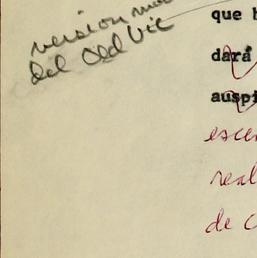 versión
del Old Vic
que
dará
ausp
escen
real
de